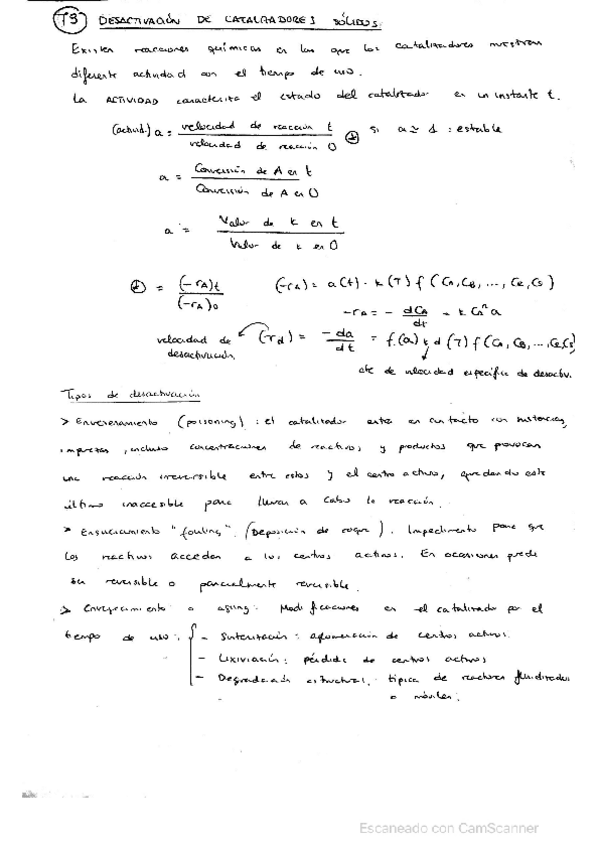 T9 DESACTIVACIÓN DE CATALIZADORES SÓLIDOS
Existen reacciones químicas en las que los catalizadores muestran
diferente actividad con el tiempo de uso.
La ACTIVIDAD caracteriza el estado del catalizador en un instante t.
(activid.) a = velocidad de reacción t / velocidad de reacción 0 * si a ≃ 1 : estable
a = Conversión de A en t / Conversión de A en 0
a = Valor de k en t / Valor de k en 0
* = (-rA)t / (-rA)0 (-rA) = a(t) · k(T) f(CA, CB, ..., CR, CS)
-rA = - dCA/dt = k CAⁿ a
velocidad de desactivación (-rd) = -da/dt = f(a) kd(T) f(CA, CB, ..., CR, CS)
cte de velocidad específica de desactiv.
Tipos de desactivación
> Envenenamiento (poisoning): el catalizador entra en contacto con sustancias
impurezas, incluso concentraciones de reactivos y productos que provocan
una reacción irreversible entre estos y el centro activo, quedando este
último inaccesible para llevar a cabo la reacción.
> Ensuciamiento "fouling" (Deposición de coque). Impedimento para que
los reactivos accedan a los centros activos. En ocasiones puede
ser reversible o parcialmente reversible.
> Envejecimiento o aging: Modificaciones en el catalizador por el
tiempo de uso: - Sinterización: aglomeración de centros activos.
- Lixiviación: pérdida de centros activos
- Degradación estructural: típica de reactores fluidizados
o móviles.
Escaneado con CamScanner